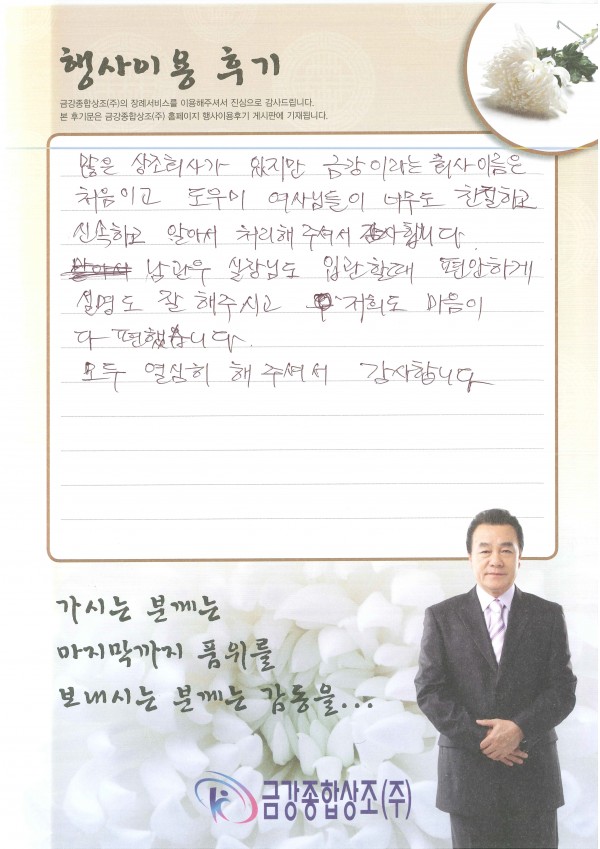 행사이용 후기
금강종합상조(주)의 장례서비스를 이용해주셔서 진심으로 감사드립니다.
본 후기문은 금강종합상조(주) 홈페이지 행사이용후기 게시판에 기재됩니다.
많은 상조회사가 있지만 금강이라는 회사이름은
처음이고 도우미 여사님들이 너무도 친절하고
신속하고 알아서 처리해주셔서 감사합니다.
남관우 실장님도 입관할때 편안하게
설명도 잘 해주시고 저희도 마음이
다 편했습니다.
모두 열심히 해주셔서 감사합니다
가시는 분께는
마지막까지 품위를
보내시는 분께는 감동을...
금강종합상조(주)